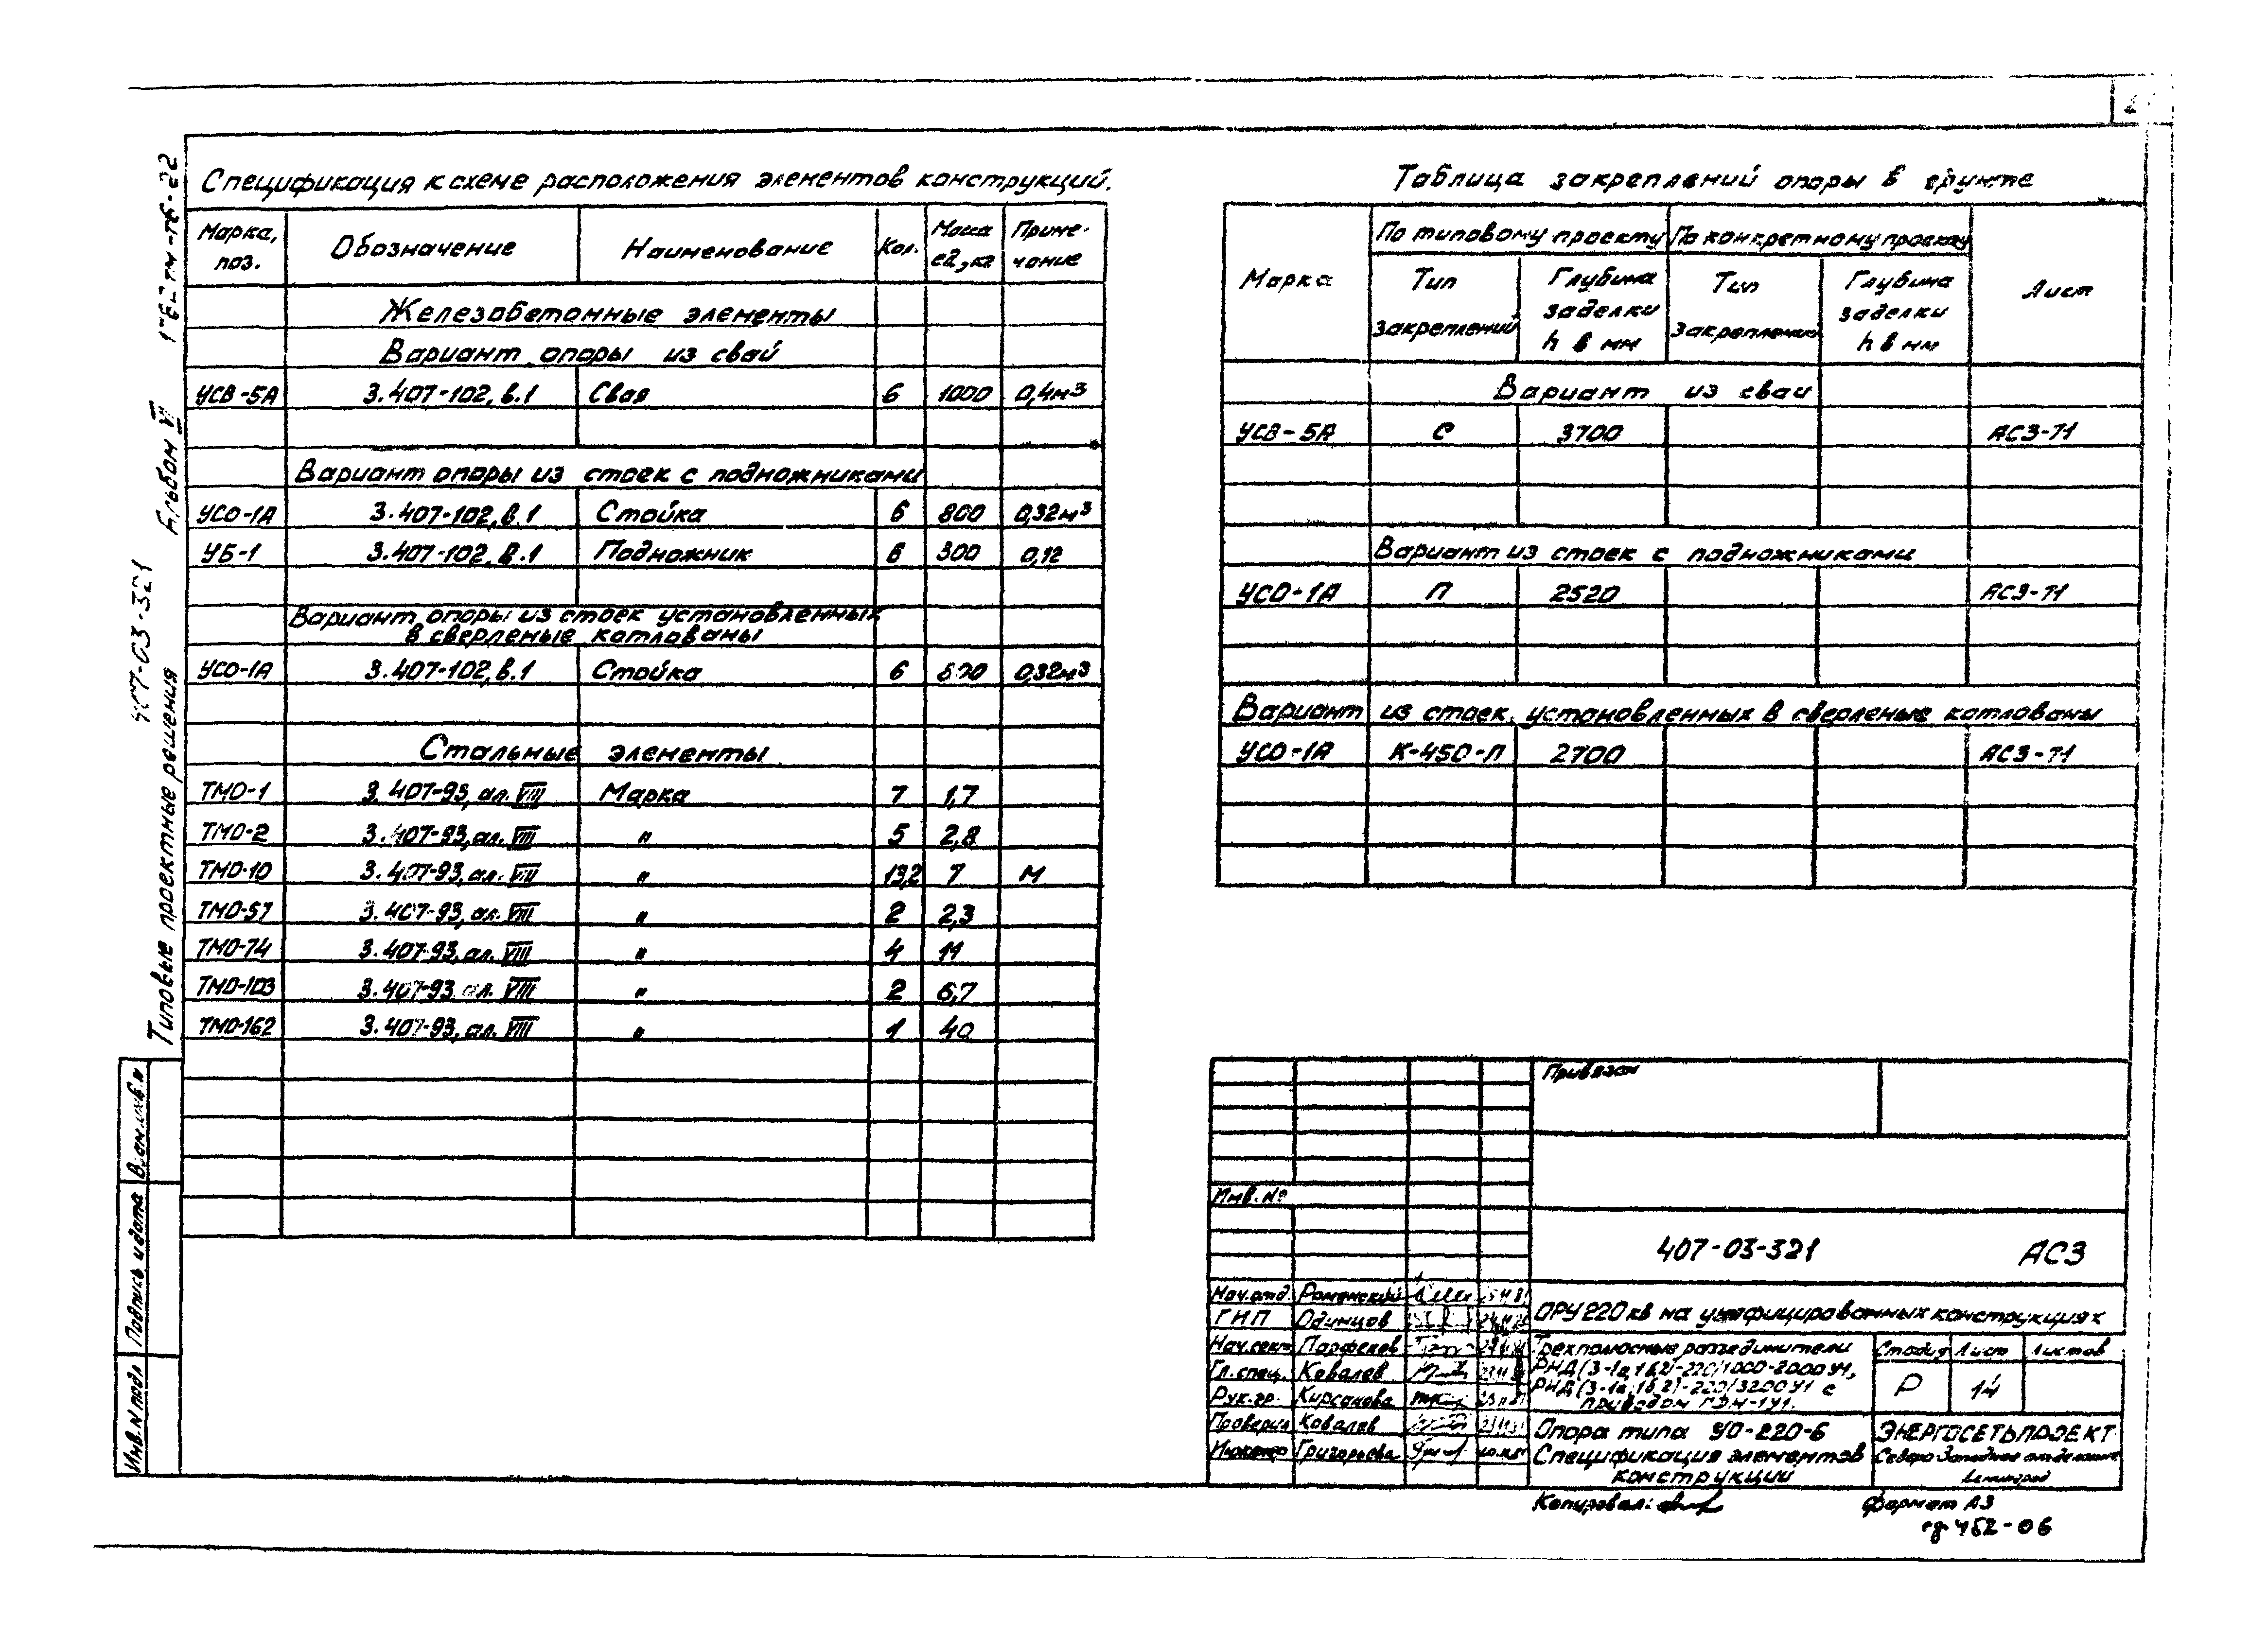 Спецификация к схеме расположения элементов конструкций.
Марка, поз. Обозначение Наименование Кол. Масса ед., кг Приме-чание
Железобетонные элементы
Вариант опоры из свай
УСВ-5А 3.407-102, в.1 Свая 6 1000 0,4м³
Вариант опоры из стоек с подножниками
УСО-1А 3.407-102, в.1 Стойка 6 800 0,32м³
УБ-1 3.407-102, в.1 Подножник 6 300 0,12
Вариант опоры из стоек установленных
в сверленые котлованы
УСО-1А 3.407-102, в.1 Стойка 6 800 0,32м³
Стальные элементы
ТМО-1 3.407-93, ал. VIII Марка 7 1,7
ТМО-2 3.407-93, ал. VIII " 5 2,8
ТМО-10 3.407-93, ал. VIII " 13,2 7 М
ТМО-57 3.407-93, ал. VIII " 2 2,3
ТМО-74 3.407-93, ал. VIII " 4 11
ТМО-103 3.407-93 ал. VIII " 2 6,7
ТМО-162 3.407-93, ал. VIII " 1 40
Таблица закреплений опоры в грунте
Марка По типовому проекту По конкретному проекту Лист
Тип закреплений Глубина заделки h в мм Тип закреплений Глубина заделки h в мм
Вариант из свай
УСВ-5А С 3700 АС3-71
Вариант из стоек с подножниками
УСО-1А П 2520 АС3-71
Вариант из стоек, установленных в сверленые котлованы
УСО-1А К-450-П 2700 АС3-71
Привязан
Инв. №
407-03-321 АС3
Нач.отд. Роменский
ГИП Одинцов
Нач.сект. Парфенов
Гл.спец. Ковалев
Рук.гр. Кирсанова
Проверил Ковалев
Инженер Григорьева
ОРУ 220 кв на унифицированных конструкциях
Трехполюсные разъединители
РНД(3-1а,1б,2)-220/1000-2000У1,
РНД(3-1а,1б,2)-220/3200У1 с
приводом ПДН-1У1.
Стадия Лист Листов
Р 14
Опора типа УО-220-6
Спецификация элементов
конструкции
ЭНЕРГОСЕТЬПРОЕКТ
Северо-Западное отделение
Ленинград
Копировал:
Формат А3
452-06
407-03-321
Типовые проектные решения Альбом VI
Инв.N подл Подпись и дата Взам.инв.N